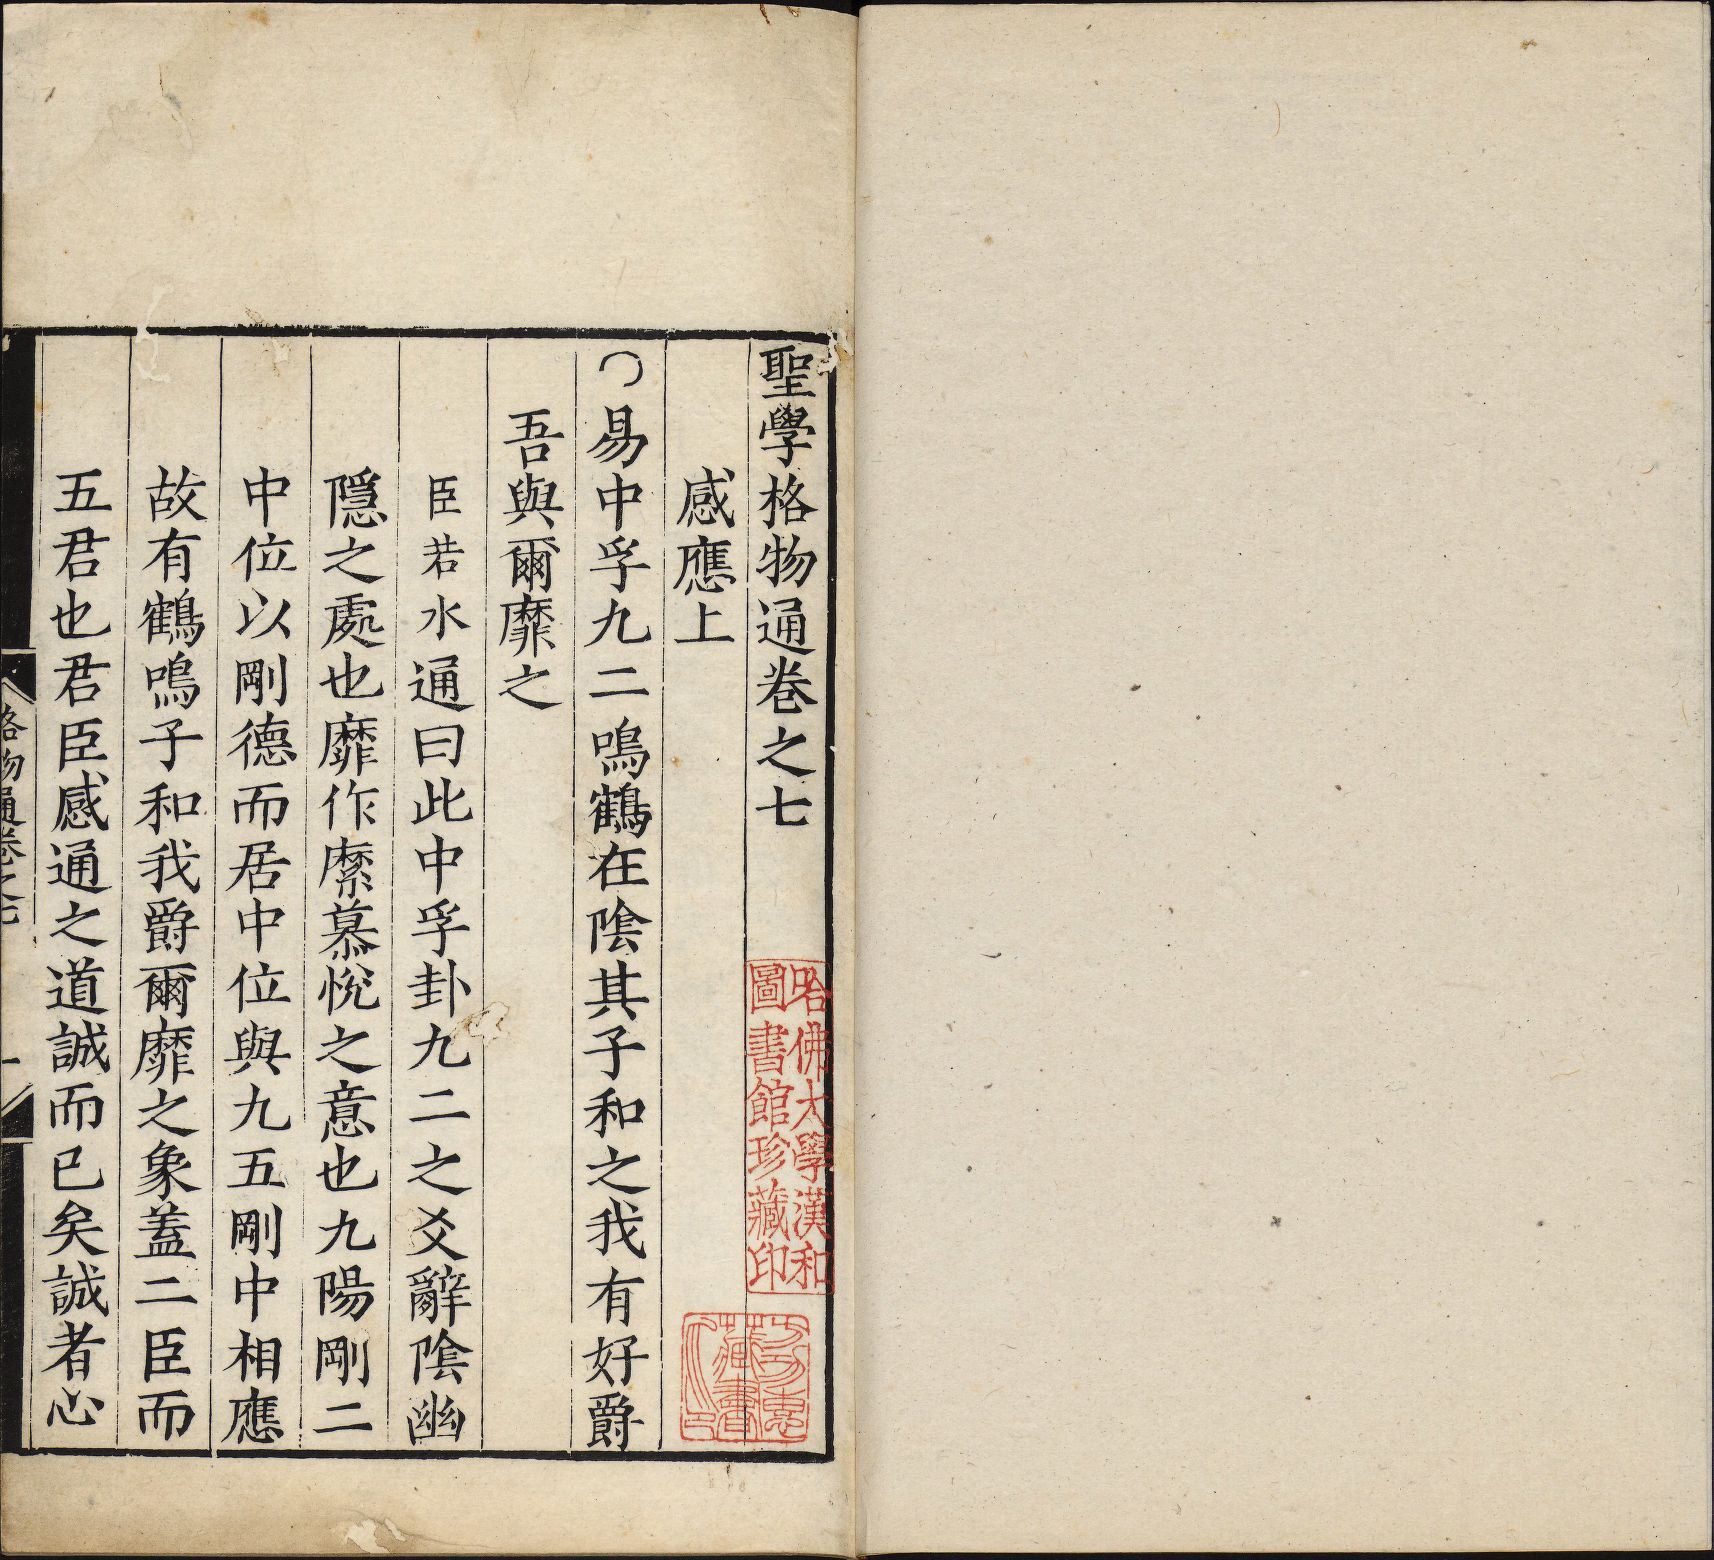 聖學格物通卷之七
感應上
〇易中孚九二鳴鶴在陰其子和之我有好爵
吾與爾靡之
臣若水通曰此中孚卦九二之爻辭陰幽
隱之處也靡作縻慕悅之意也九陽剛二
中位以剛德而居中位與九五剛中相應
故有鶴鳴子和我爵爾靡之象蓋二臣而
五君也君臣感通之道誠而已矣誠者心
格物通卷之七
一
哈佛大學漢和
圖書館珍藏印